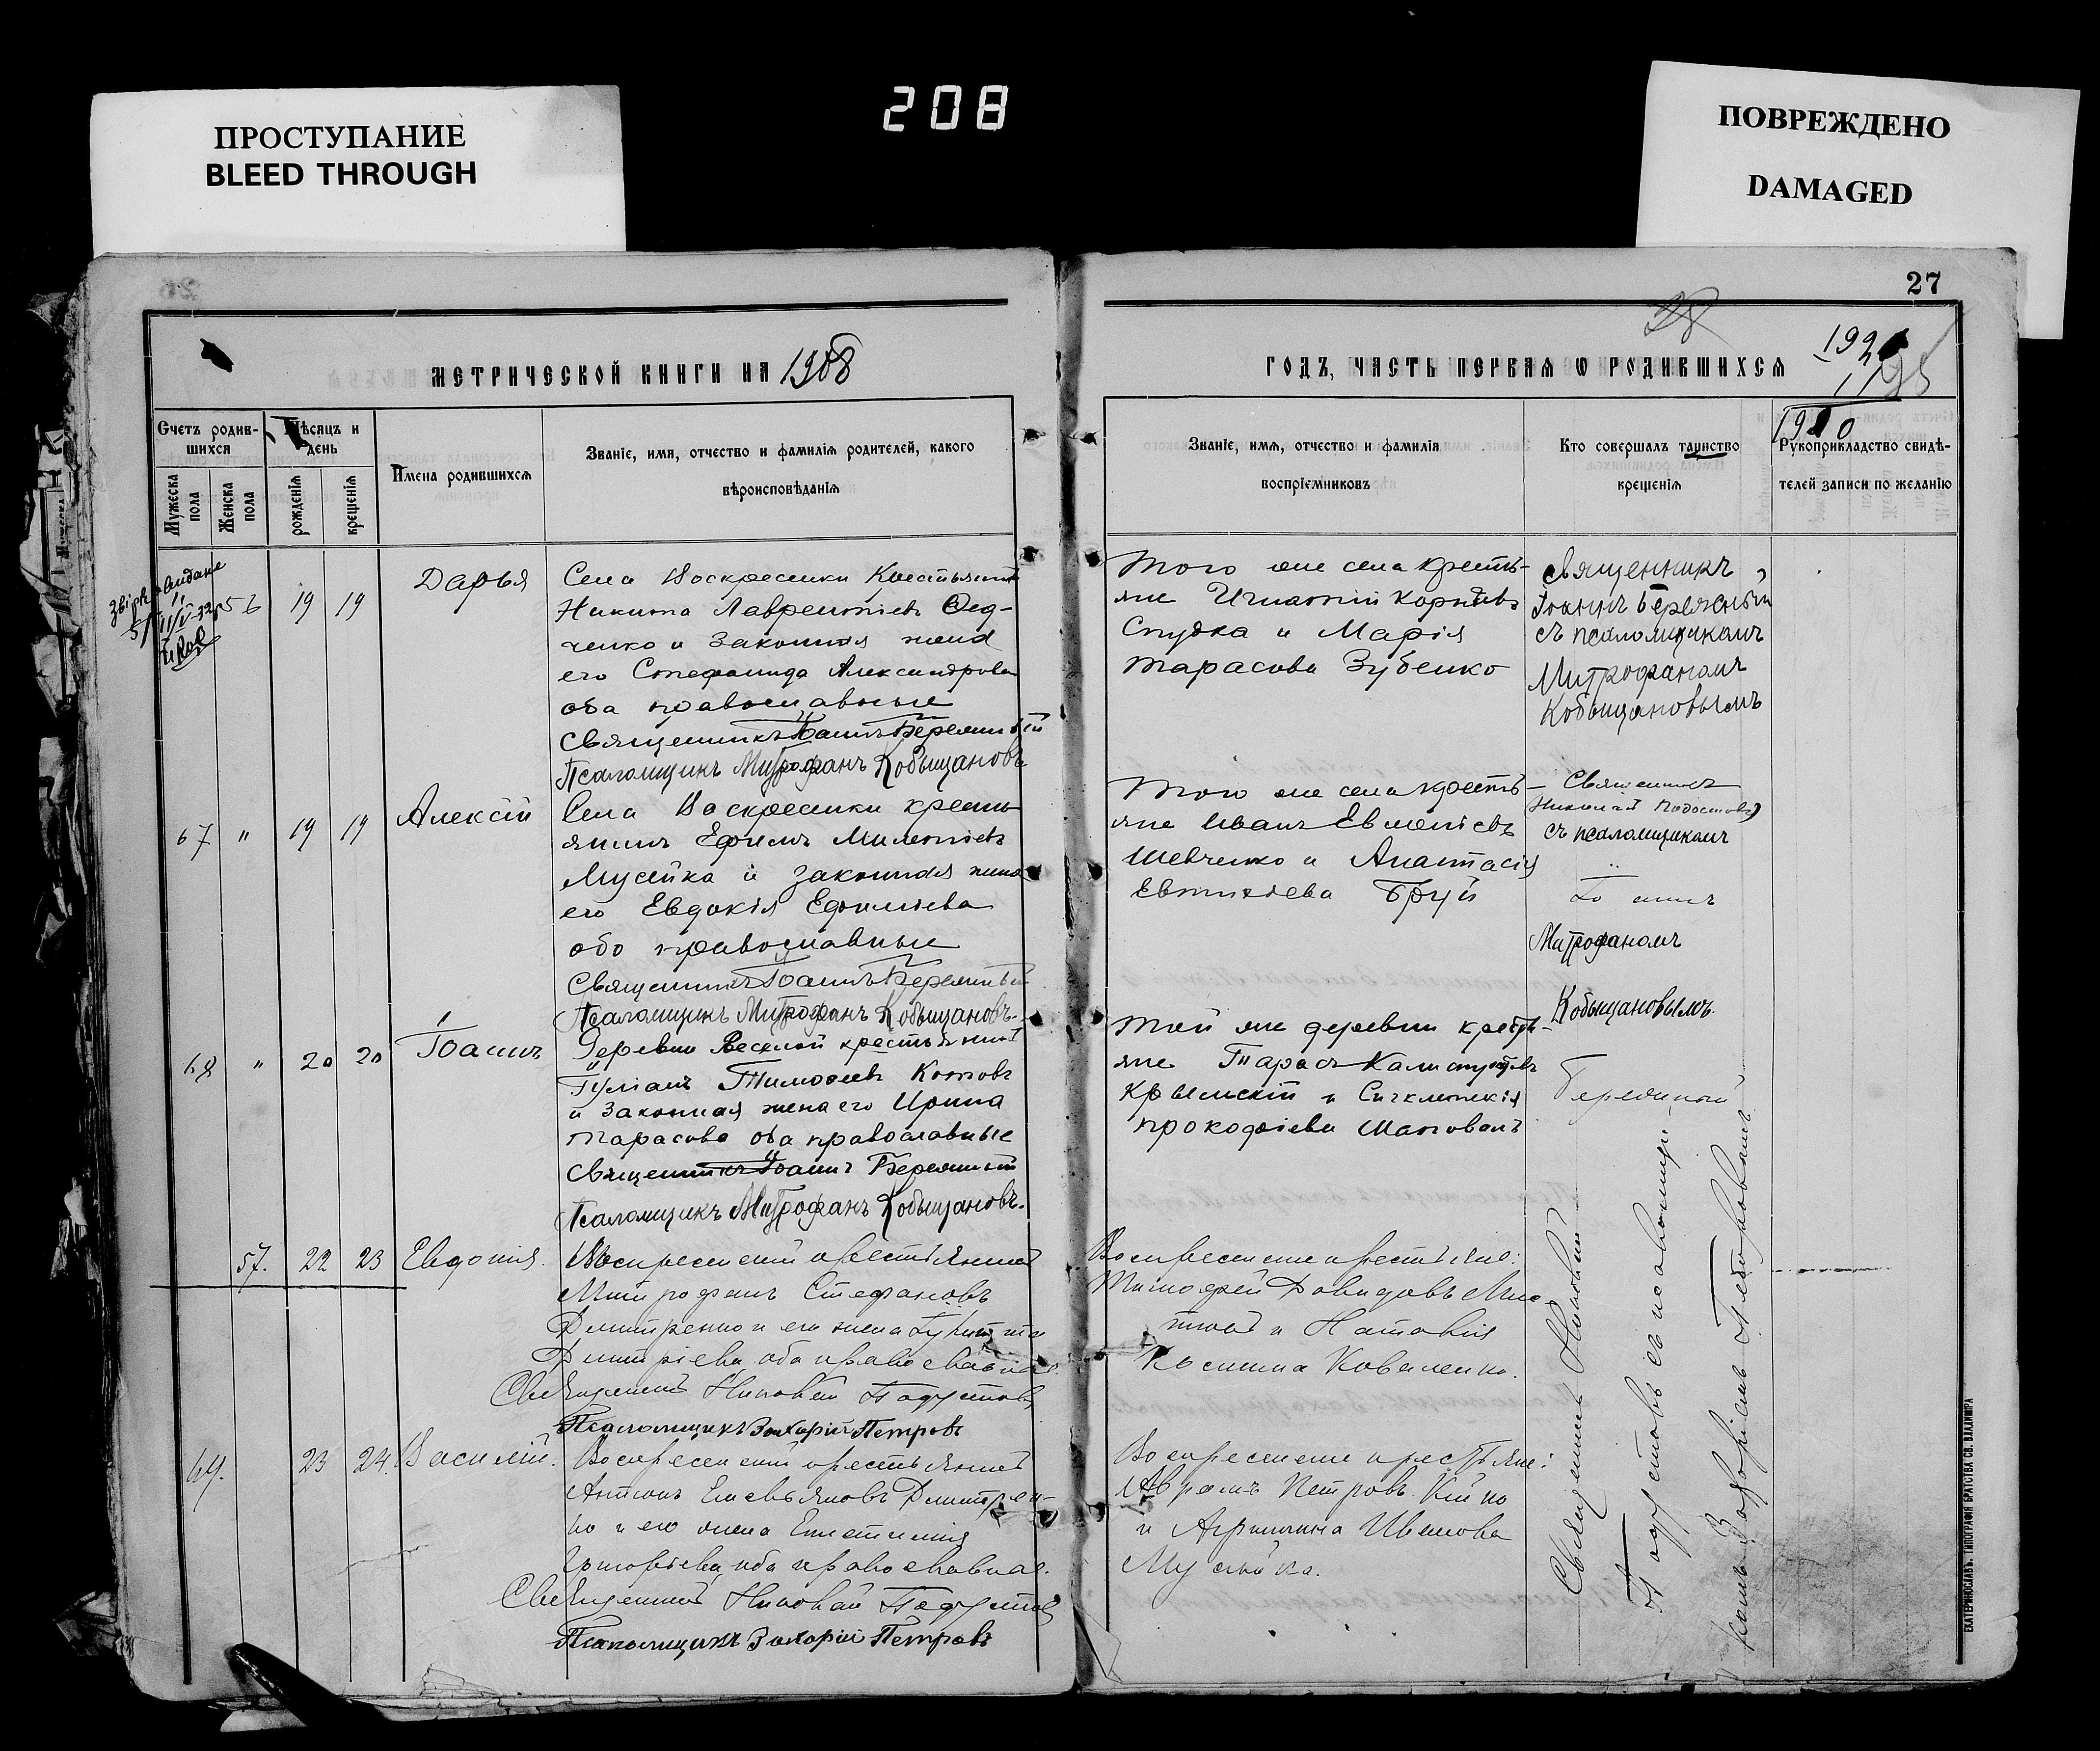 ПРОСТУПАНИЕ
BLEED THROUGH
208
ПОВРЕЖДЕНО
DAMAGED
27
МЕТРИЧЕСКОЙ КНИГИ НА 1908
ГОДЪ, ЧАСТЬ ПЕРВАЯ Ѡ РОДИВШИХСЯ
Счетъ родив-
шихся
Мѣсяцъ и
день
Мужеска пола
Женска пола
рожденія
крещенія
Имена родившихся
Званіе, имя, отчество и фамилія родителей, какого
вѣроисповѣданія
Званіе, имя, отчество и фамилія
воспріемниковъ
Кто совершалъ таинство
крещенія
Рукоприкладство свидѣ-
телей записи по желанію
56 19 19 Дарья
Села Воскресенки Крестьянинъ
Никита Лаврентіевъ Фед-
ченко и Законная жена
его Стефанида Александрова
оба православные
Священникъ Іоаннъ Бережный
Псаломщикъ Митрофанъ Кобыщановъ
Того же села кресть-
яне Игнатій Корніевъ
Спудка и Марія
Тарасова Зубенко
Священникъ
Іоаннъ Бережный
съ псаломщикомъ
Митрофаномъ
Кобыщановымъ
67 " 19 19 Алексій
Села Воскресенки кресть-
янинъ Ефимъ Милетіевъ
Мусійка и законная жена
его Евдокія Ефиміева
обо православные
Священникъ Іоаннъ Бережный
Псаломщикъ Митрофанъ Кобыщановъ.
Того же села кресть-
яне Иванъ Евменіевъ
Шевченко и Анастасія
Евтихіева Бруй
Священникъ
Николай
съ псаломщикомъ
Митрофаномъ
Кобыщановымъ.
68 " 20 20 Іоаннъ
Деревни Веселой крестьянинъ
Іуліанъ Тимофеевъ Котовъ
и Законная жена его Ирина
Тарасова оба православные
Священникъ Іоаннъ Бережный
Псаломщикъ Митрофанъ Кобыщановъ.
Той же деревни кресть-
яне Тарасъ
Крымскій и Синклитикія
Прокофіева Шаповалъ
57. 22 23 Евдокія.
Воскресенскій крестьянинъ
Митрофанъ Стефановъ
Дмитренко и его жена
Дмитріева, оба православные.
Священникъ Николай
Псаломщикъ Захарій Петровъ
Воскресенскіе крестьяне:
Тимофей Давидовъ
и Наталія
Косьмина Коваленко.
69. 23 24. Василій.
Воскресенскій крестьянинъ
Антонъ Емельяновъ Дмитрен-
ко и его жена Епистимія
Григорьева, оба православные.
Священникъ Николай
Псаломщикъ Захарій Петровъ
Воскресенскіе крестьяне:
Авраамъ Петровъ Кійко
и Агриппина Иванова
Мусійка.
Священникъ Николай
съ псаломщи-
комъ Захаріемъ Петровымъ
ЕКАТЕРИНОСЛАВЪ. ТИПОГРАФІЯ БРАТСТВА СВ. ВЛАДИМІРА